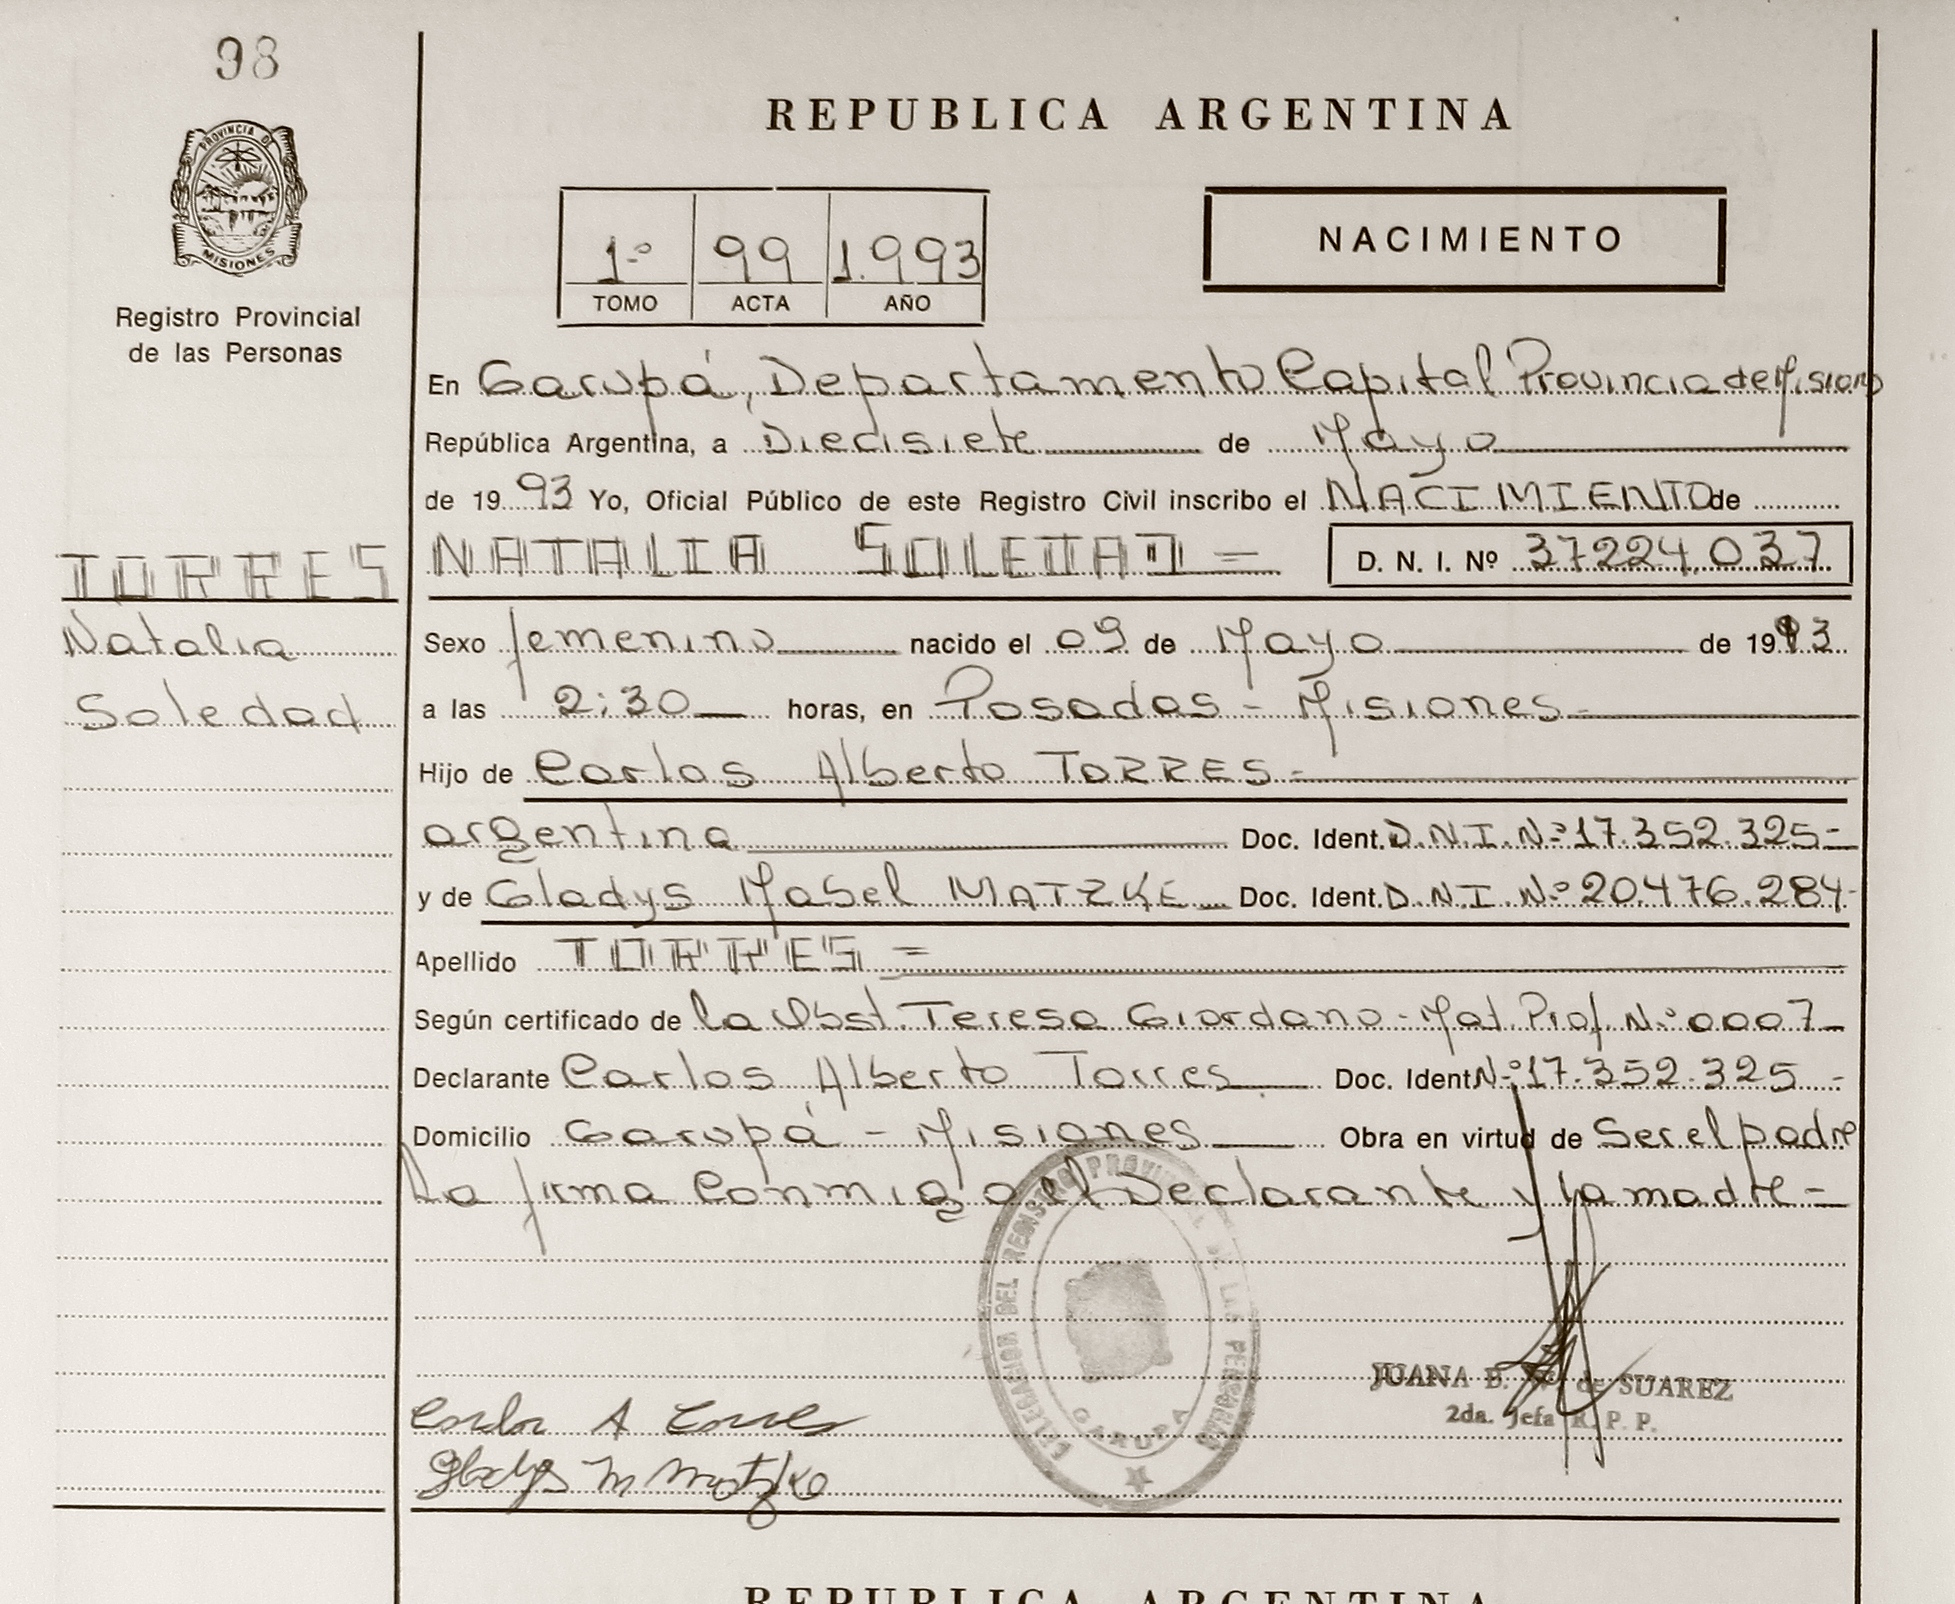 98
PROVINCIA DE
MISIONES
Registro Provincial
de las Personas
REPUBLICA ARGENTINA
1º 99 1.993
TOMO ACTA AÑO
NACIMIENTO
En Garupá, Departamento Capital Provincia de Misiones
República Argentina, a Diecisiete de Mayo
de 1993 Yo, Oficial Público de este Registro Civil inscribo el NACIMIENTO de
TORRES
Natalia
Soledad
NATALIA SOLEDAD = D. N. I. Nº 37224.037
Sexo femenino nacido el 09 de Mayo de 1993
a las 2:30 horas, en Posadas - Misiones
Hijo de Carlos Alberto TORRES -
argentina Doc. Ident. D.N.I. Nº 17.352.325-
y de Gladys Mabel MATZKE Doc. Ident. D.N.I. Nº 20.476.284-
Apellido TORRES =
Según certificado de la Obst. Teresa Giordano - Mat. Prof. Nº 0007
Declarante Carlos Alberto Torres Doc. Ident Nº 17.352.325 -
Domicilio Garupá - Misiones Obra en virtud de Ser el padre
La firma Conmigo el Declarante y la madre -
DELEGACION DEL REGISTRO PROVINCIAL DE LAS PERSONAS
GARUPA
JUANA E. de SUAREZ
2da. Jefa R. P. P.
Carlos A Torres
Gladys M Matzke
REPUBLICA ARGENTINA